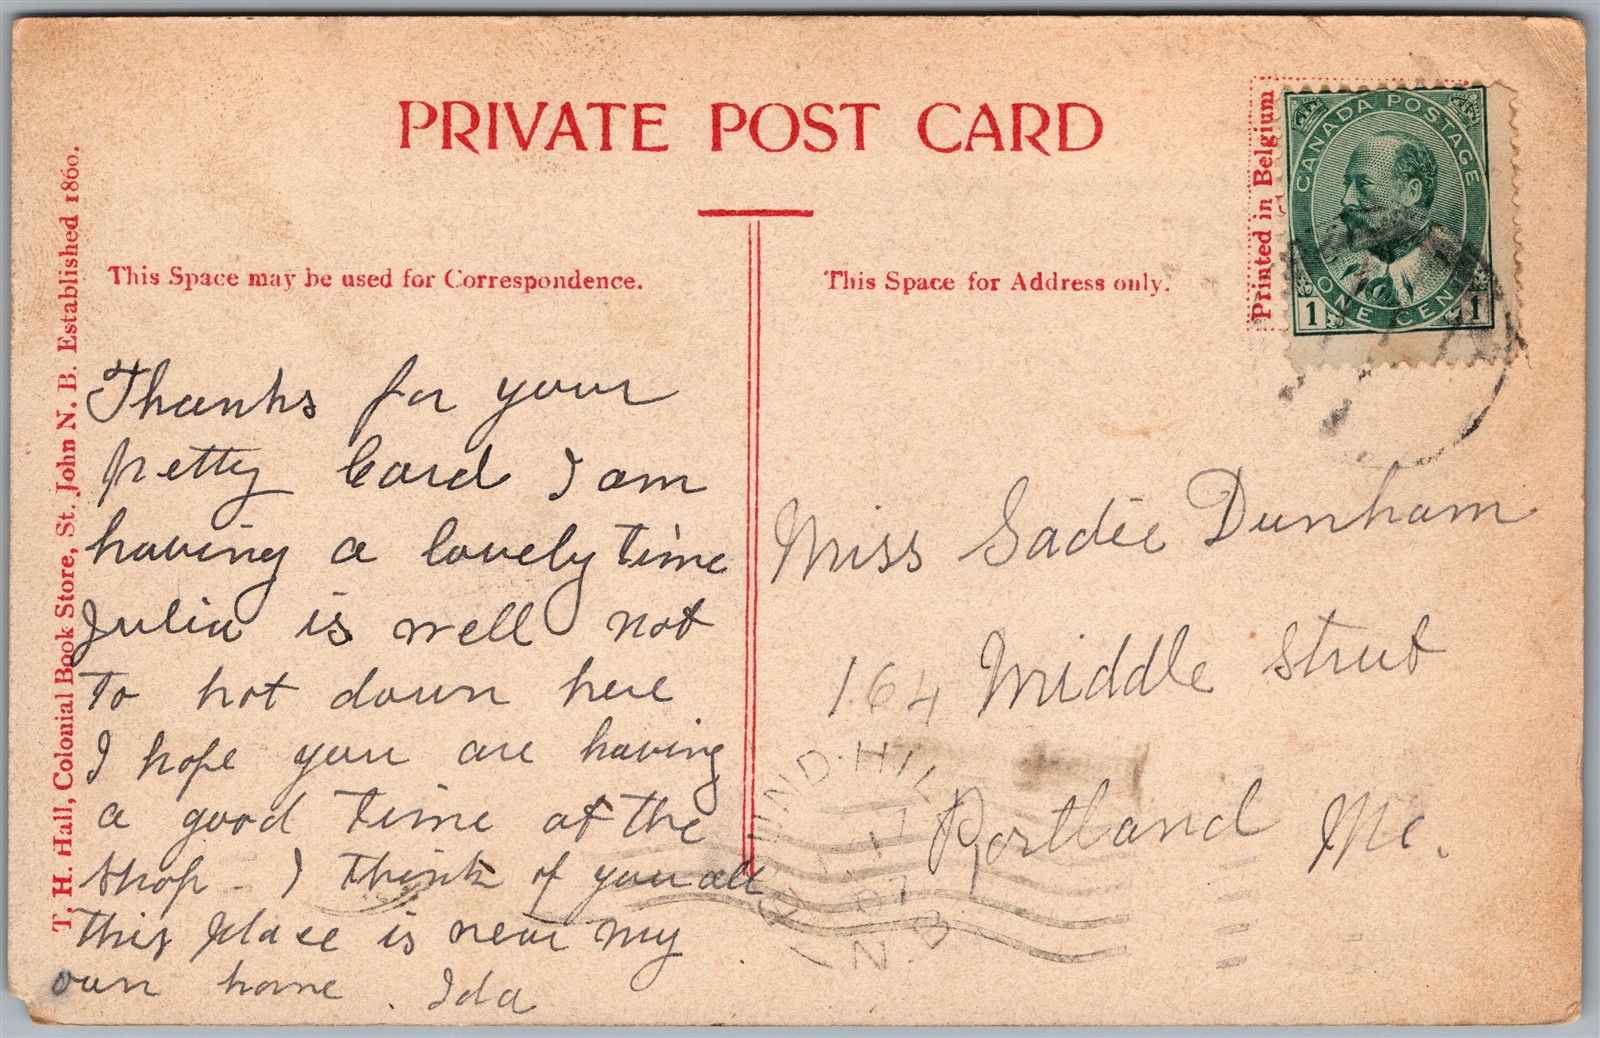 PRIVATE POST CARD
This Space may be used for Correspondence.
This Space for Address only.
Printed in Belgium
CANADA POSTAGE
1 ONE CENT 1
T. H. Hall, Colonial Book Store, St. John N. B. Established 1860.
Thanks for your
pretty Card I am
having a lovely time
Julia is well not
to hot down here
I hope you are having
a good time at the
shop - I think of you all
this place is near my
own home . Ida
Miss Sadie Dunham
164 Middle Street
Portland Me.
UND HIL
17
07
N.B.